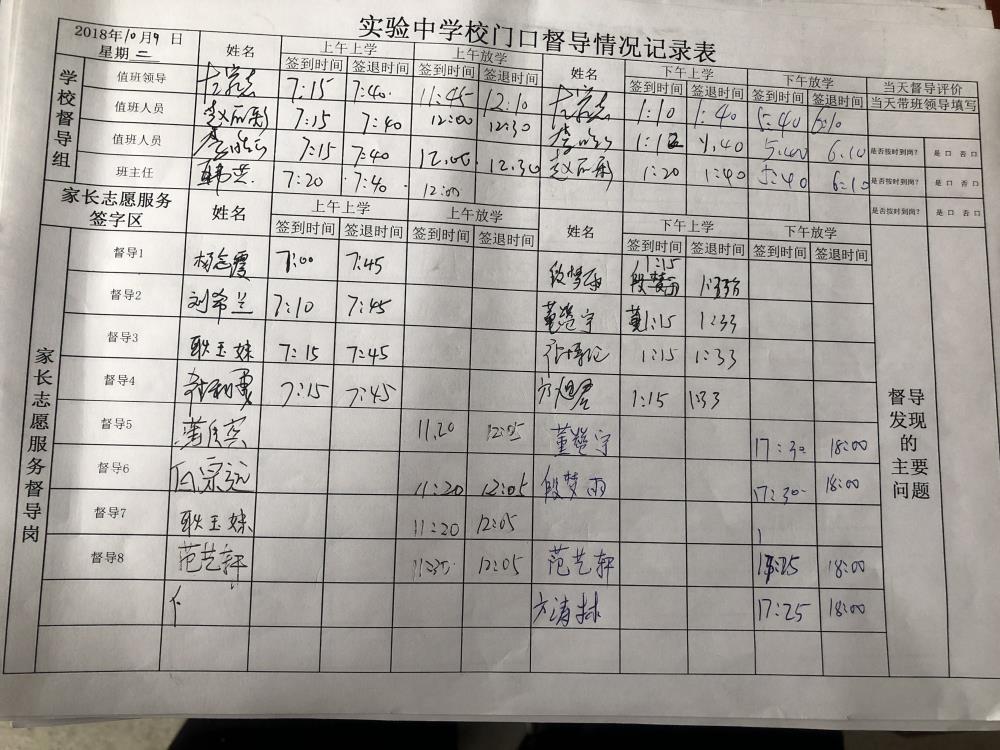 实验中学校门口督导情况记录表
2018年10月9日
星期二
姓名 上午上学 上午放学 姓名 下午上学 下午放学 当天督导评价
签到时间 签退时间 签到时间 签退时间 签到时间 签退时间 签到时间 签退时间 当天带班领导填写
学校督导组
值班领导 7:15 7:40 11:45 12:10 1:10 1:40 5:40 6:10
值班人员 7:15 7:40 12:00 12:30 1:40 5:40 6:10 是否按时到岗? 是口 否口
值班人员 7:15 7:40 12:00 12:30 1:20 1:40 5:40 6:10 是否按时到岗? 是口 否口
班主任 7:20 7:40 12:00 是否按时到岗? 是口 否口
家长志愿服务
签字区
姓名 上午上学 上午放学 姓名 下午上学 下午放学
签到时间 签退时间 签到时间 签退时间 签到时间 签退时间 签到时间 签退时间
家长志愿服务督导岗
督导1 7:00 7:45 1:15
督导2 刘希兰 7:10 7:45 董 1:15 1:33
督导3 耿玉妹 7:15 7:45 1:15 1:33
督导4 7:15 7:45 1:15 1:33
督导5 11:20 12:05 董 17:30 18:00
督导6 宗远 11:20 12:05 段梦雨 17:30 18:00
督导7 耿玉妹 11:20 12:05
督导8 范艺轩 12:05 范艺轩 18:00
方涛林 17:25 18:00
督导
发现
的
主要
问题